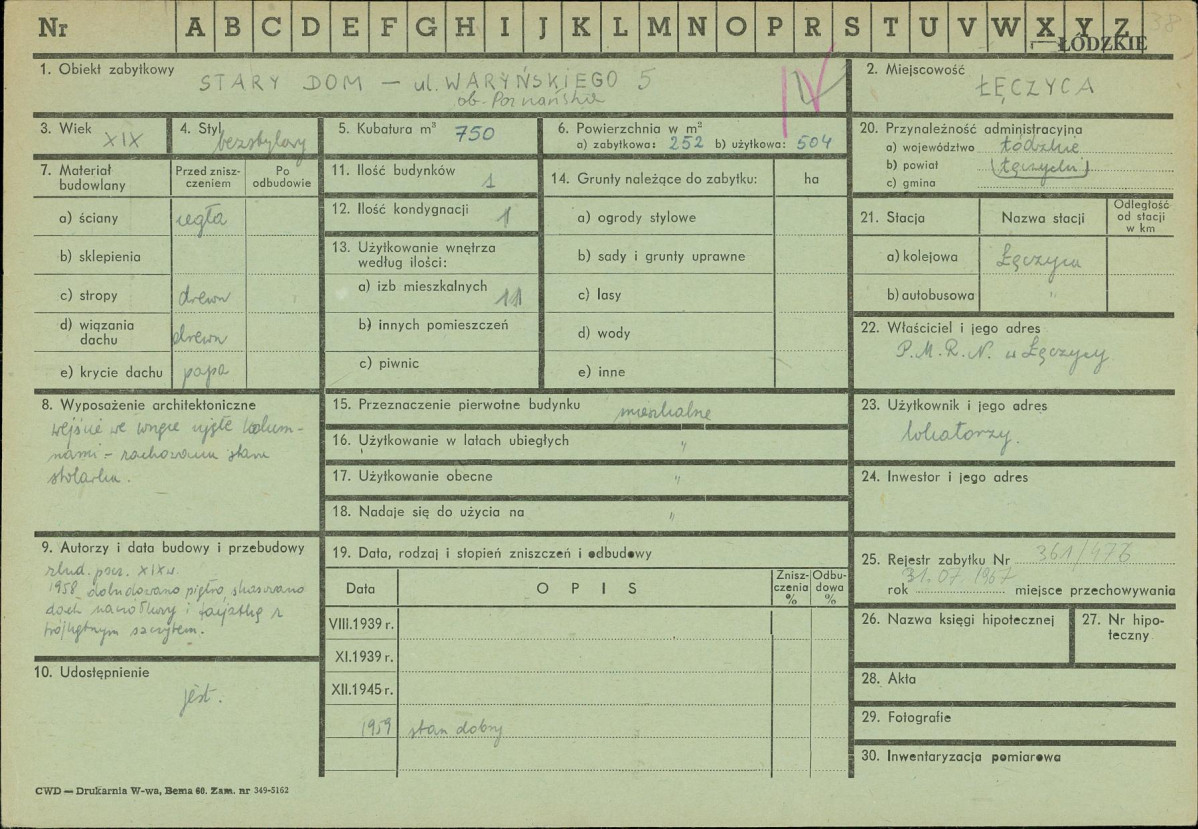 Nr A B C D E F G H I J K L M N O P R S T U V W X Y Z 38
ŁÓDZKIE
1. Obiekt zabytkowy
STARY DOM — ul. WARYŃSKIEGO 5
ob. Poznańska
IV
2. Miejscowość
ŁĘCZYCA
3. Wiek
XIX
4. Styl
bezstylowy
5. Kubatura m³ 750
6. Powierzchnia w m²
a) zabytkowa: 252 b) użytkowa: 504
20. Przynależność administracyjna
a) województwo łódzkie
b) powiat (łęczycki)
c) gmina
7. Materiał budowlany
Przed zniszczeniem
Po odbudowie
a) ściany cegła
b) sklepienia
c) stropy drewn
d) wiązania dachu drewn
e) krycie dachu papa
11. Ilość budynków 1
12. Ilość kondygnacji 1
13. Użytkowanie wnętrza
według ilości:
a) izb mieszkalnych 11
b) innych pomieszczeń
c) piwnic
14. Grunty należące do zabytku: ha
a) ogrody stylowe
b) sady i grunty uprawne
c) lasy
d) wody
e) inne
21. Stacja Nazwa stacji Odległość od stacji w km
a) kolejowa Łęczyca
b) autobusowa "
22. Właściciel i jego adres
P.M.R.N. w Łęczycy
8. Wyposażenie architektoniczne
wejście we wnęce ujęte kolum-
nami – zachowana stara
stolarka.
15. Przeznaczenie pierwotne budynku mieszkalne
16. Użytkowanie w latach ubiegłych "
17. Użytkowanie obecne "
18. Nadaje się do użycia na "
23. Użytkownik i jego adres
lokatorzy.
24. Inwestor i jego adres
9. Autorzy i data budowy i przebudowy
zbud. pocz. XIX w.
1958 dobudowano piętro, skasowano
dach naczółkowy i facjatkę z
trójkątnym szczytem.
19. Data, rodzaj i stopień zniszczeń i odbudowy
Data OPIS Zniszczenia % Odbudowa %
VIII.1939 r.
XI.1939 r.
XII.1945 r.
1959 stan dobry
25. Rejestr zabytku Nr 361/476
31.07 1967
rok miejsce przechowywania
26. Nazwa księgi hipotecznej
27. Nr hipoteczny
10. Udostępnienie
jest.
28. Akta
29. Fotografie
30. Inwentaryzacja pomiarowa
CWD — Drukarnia W-wa, Bema 60. Zam. nr 349-5162